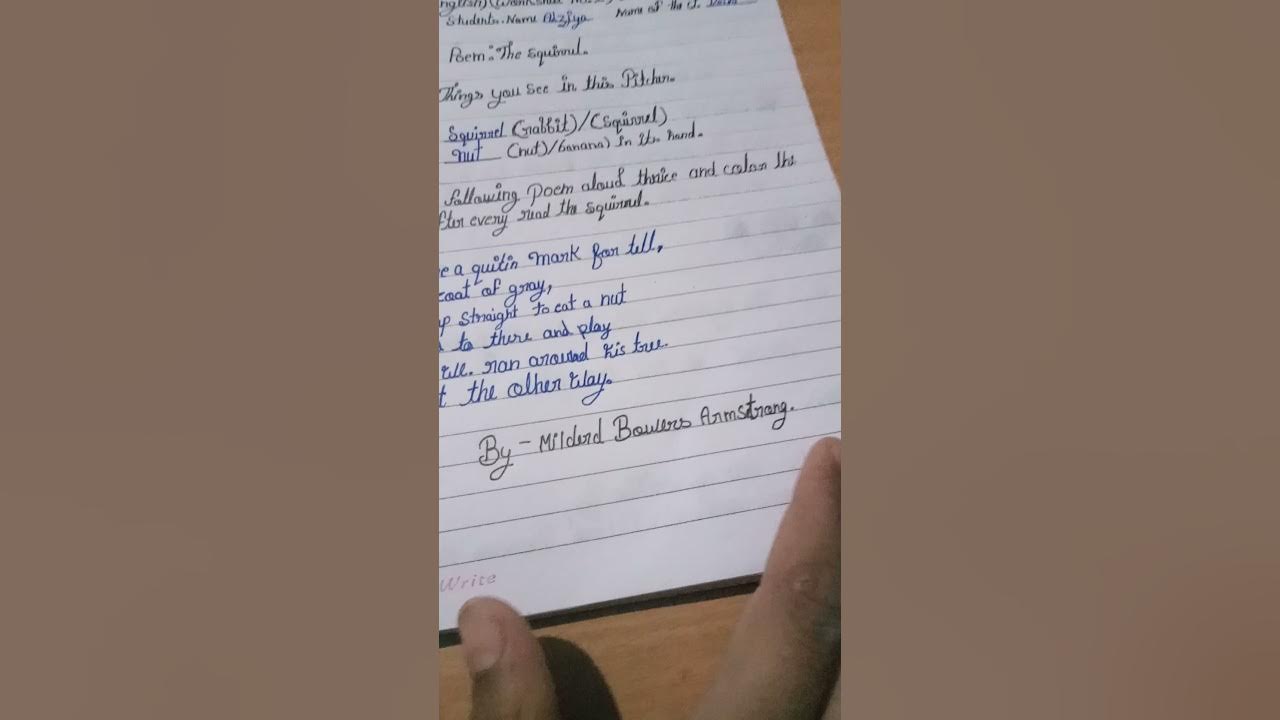 Students. Name Name of the
Poem: The squirrel.
Things you see in this
Squirrel (rabbit)/(Squirrel)
nut (nut)/banana) in its hand.
following poem aloud thrice and the
every read the squirrel.
e a mark for tell,
coat of gray,
p straight to eat a nut
to there and play
ran around his tree.
t the other way.
By - Milderd Bowers Armstrang.
Write